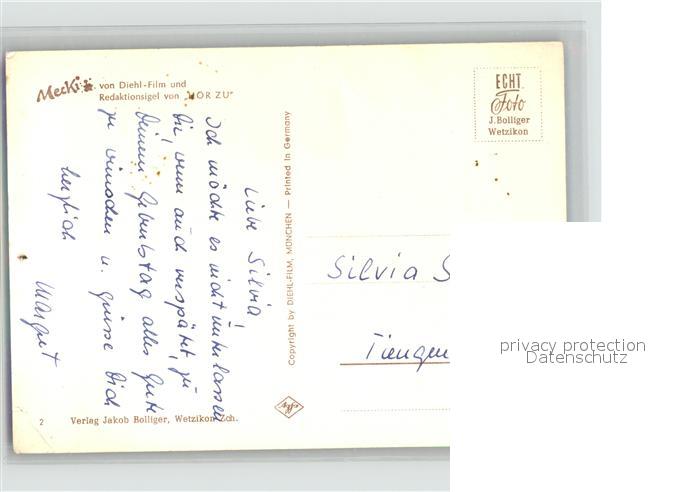 Mecki von Diehl-Film und
Redaktionsigel von „HÖR ZU"
ECHT
Foto
J. Bolliger
Wetzikon
Liebe Silvia,
Ich möchte es nicht unterlassen
Dir, wenn auch verspätet, zu
Deinem Geburtstag alles Gute
zu wünschen u. grüsse Dich
herzlich
Margret
Copyright by DIEHL-FILM, MÜNCHEN — Printed in Germany
Silvia S
Tiengen
privacy protection
Datenschutz
Agfa
2 Verlag Jakob Bolliger, Wetzikon Zch.